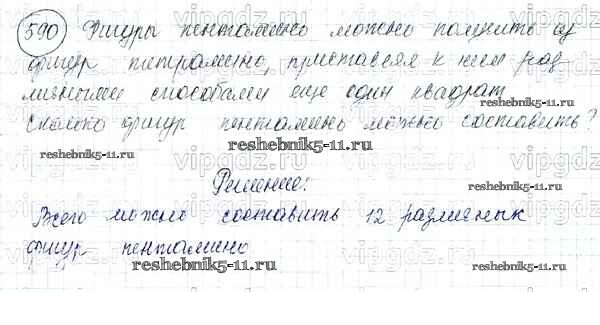 590 Фигуры пентамино можно получить из
фигур тетрамино, приставляя к ним раз-
личными способами еще один квадрат.
Сколько фигур пентамино можно составить?
reshebnik5-11.ru
reshebnik5-11.ru
reshebnik5-11.ru
Решение:
reshebnik5-11.ru
Всего можно составить 12 различных
фигур пентамино
reshebnik5-11.ru
reshebnik5-11.ru